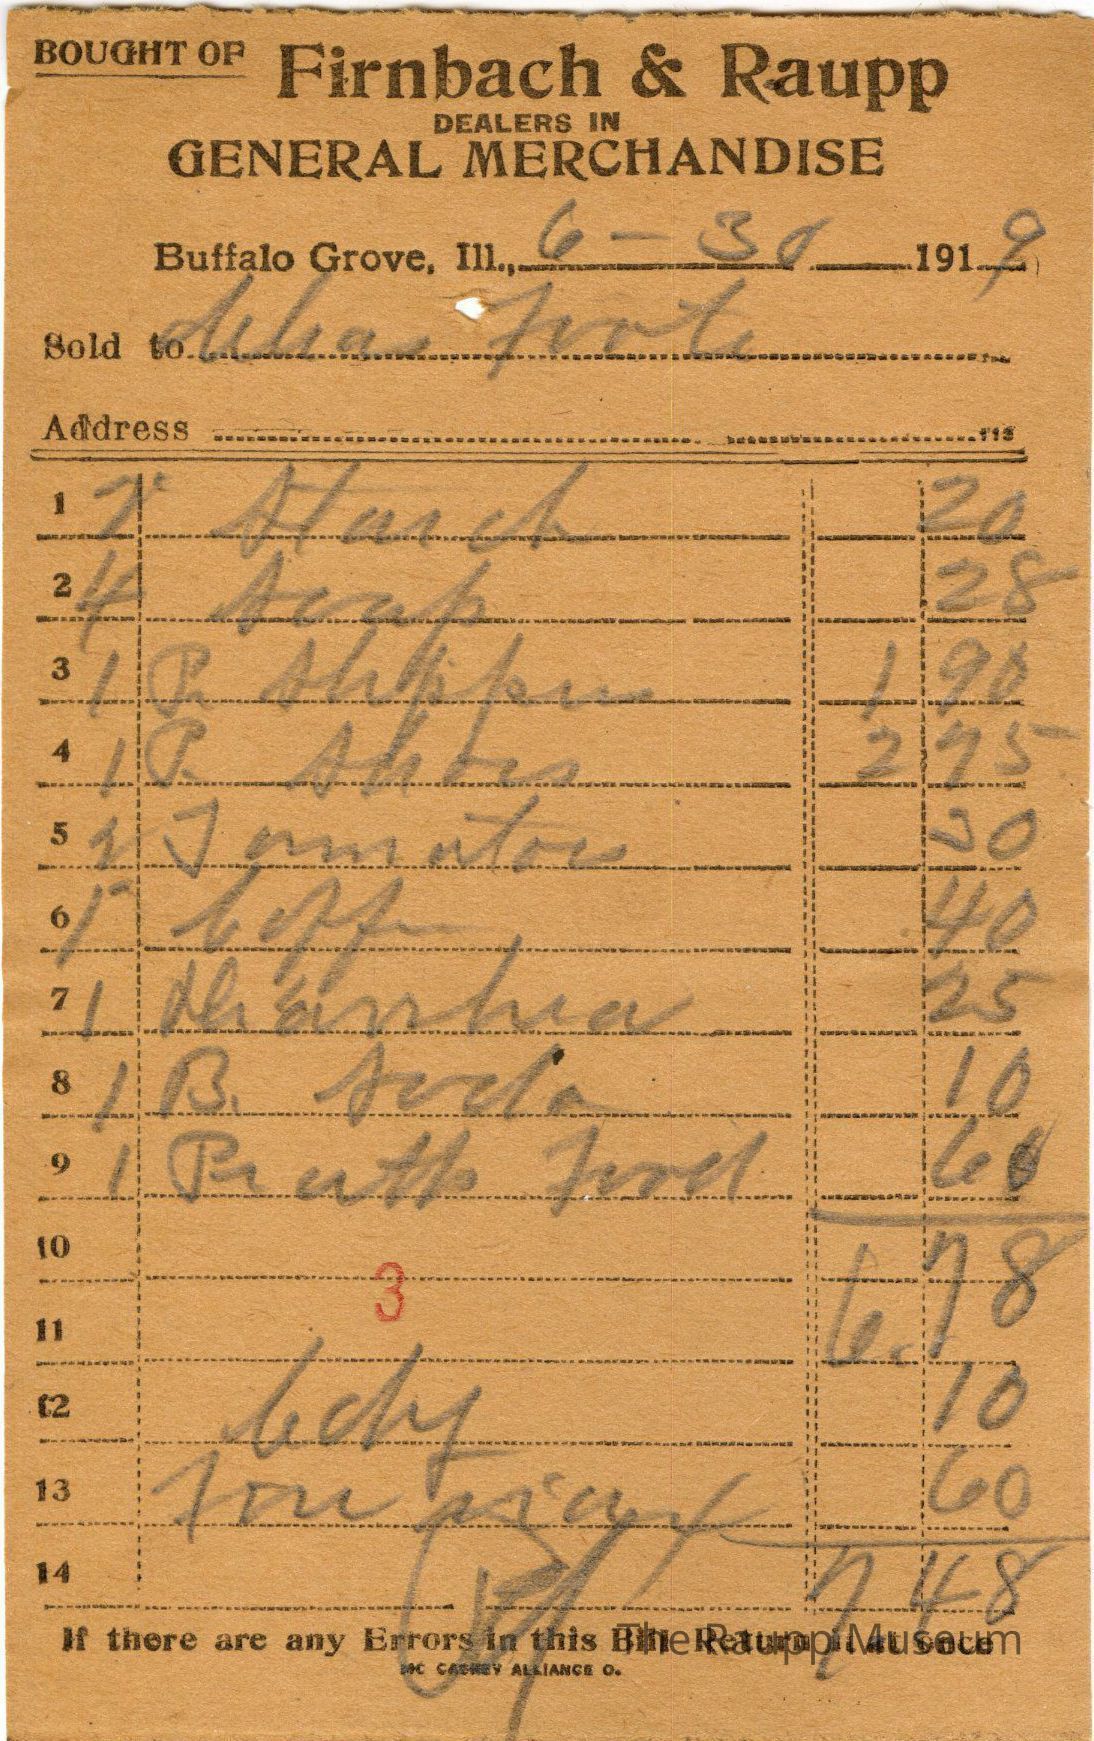 BOUGHT OF Firnbach & Raupp
DEALERS IN
GENERAL MERCHANDISE
Buffalo Grove, Ill., 6 - 30 1919
Sold to Chas
Address
1 Starch 20
2 4 Soap 28
3 1 Pr Slippers 1 90
4 1 P. Shoes 2 75
5 2 Tomatoes 30
6 1 Coffee 40
7 1 25
8 1 B. Soda 10
9 1 Pratts Food 60
10
6.78
3
11
12 Cdy 10
13 60
14 7 48
If there are any Errors in this Bill Return it at once
The Raupp Museum
MC CASKEY ALLIANCE O.